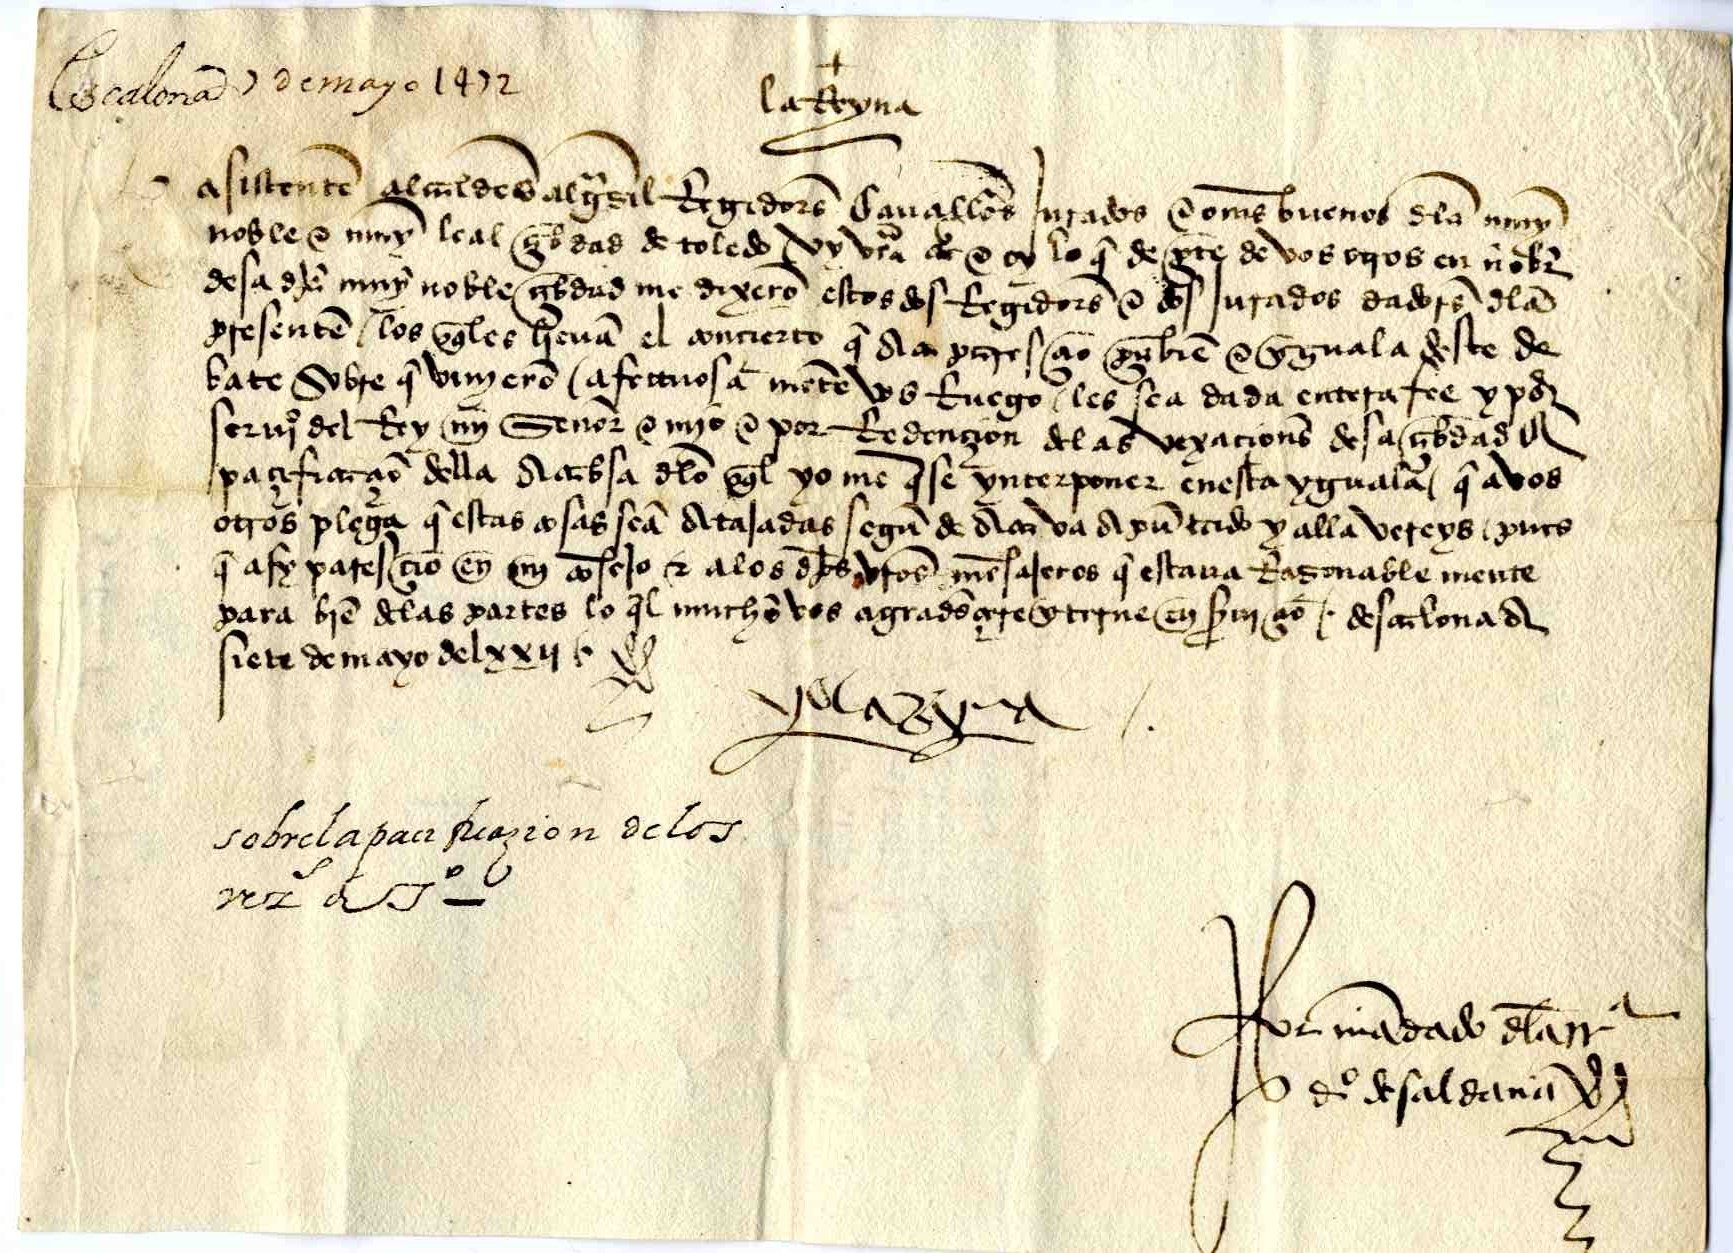 Escalona 7 de mayo 1472
la Reyna
asistente alcaldes alguazil Regidores Cavalleros Jurados e oms buenos dla muy
noble e muy leal çibdad de toledo vy vra e lo q de pte de vos otros en nobr
desa muy noble çibdad me dixero estos dos Regidores e dos Jurados dadores dla
presente los qles lleva el concierto q aca paresçio e yguala deste de
bate sobre q vinyero afectuosa mente vos Ruego les sea dada entera fee y por
serviº del Rey my Señor e mio e por Redençion delas vexaciones desa çibdad
paçificaçio della A cabsa dlo ql yo me q se ynterponer enesta yguala q a vos
otros plega q estas cosas sea Atajadas segu de aca va Apuntado y alla vereys pues
q asy paresçio en my cosejo e a los dhos vros mesajeros q estava Razonable mente
para bie delas partes lo ql mucho vos agradesçere e terne en serviçio descalona A
siete de mayo de lxxii
yo la Reyna
sobre la pacificazion de los
vezs de Tº
Por mādado dla rrª
dº de saldaña